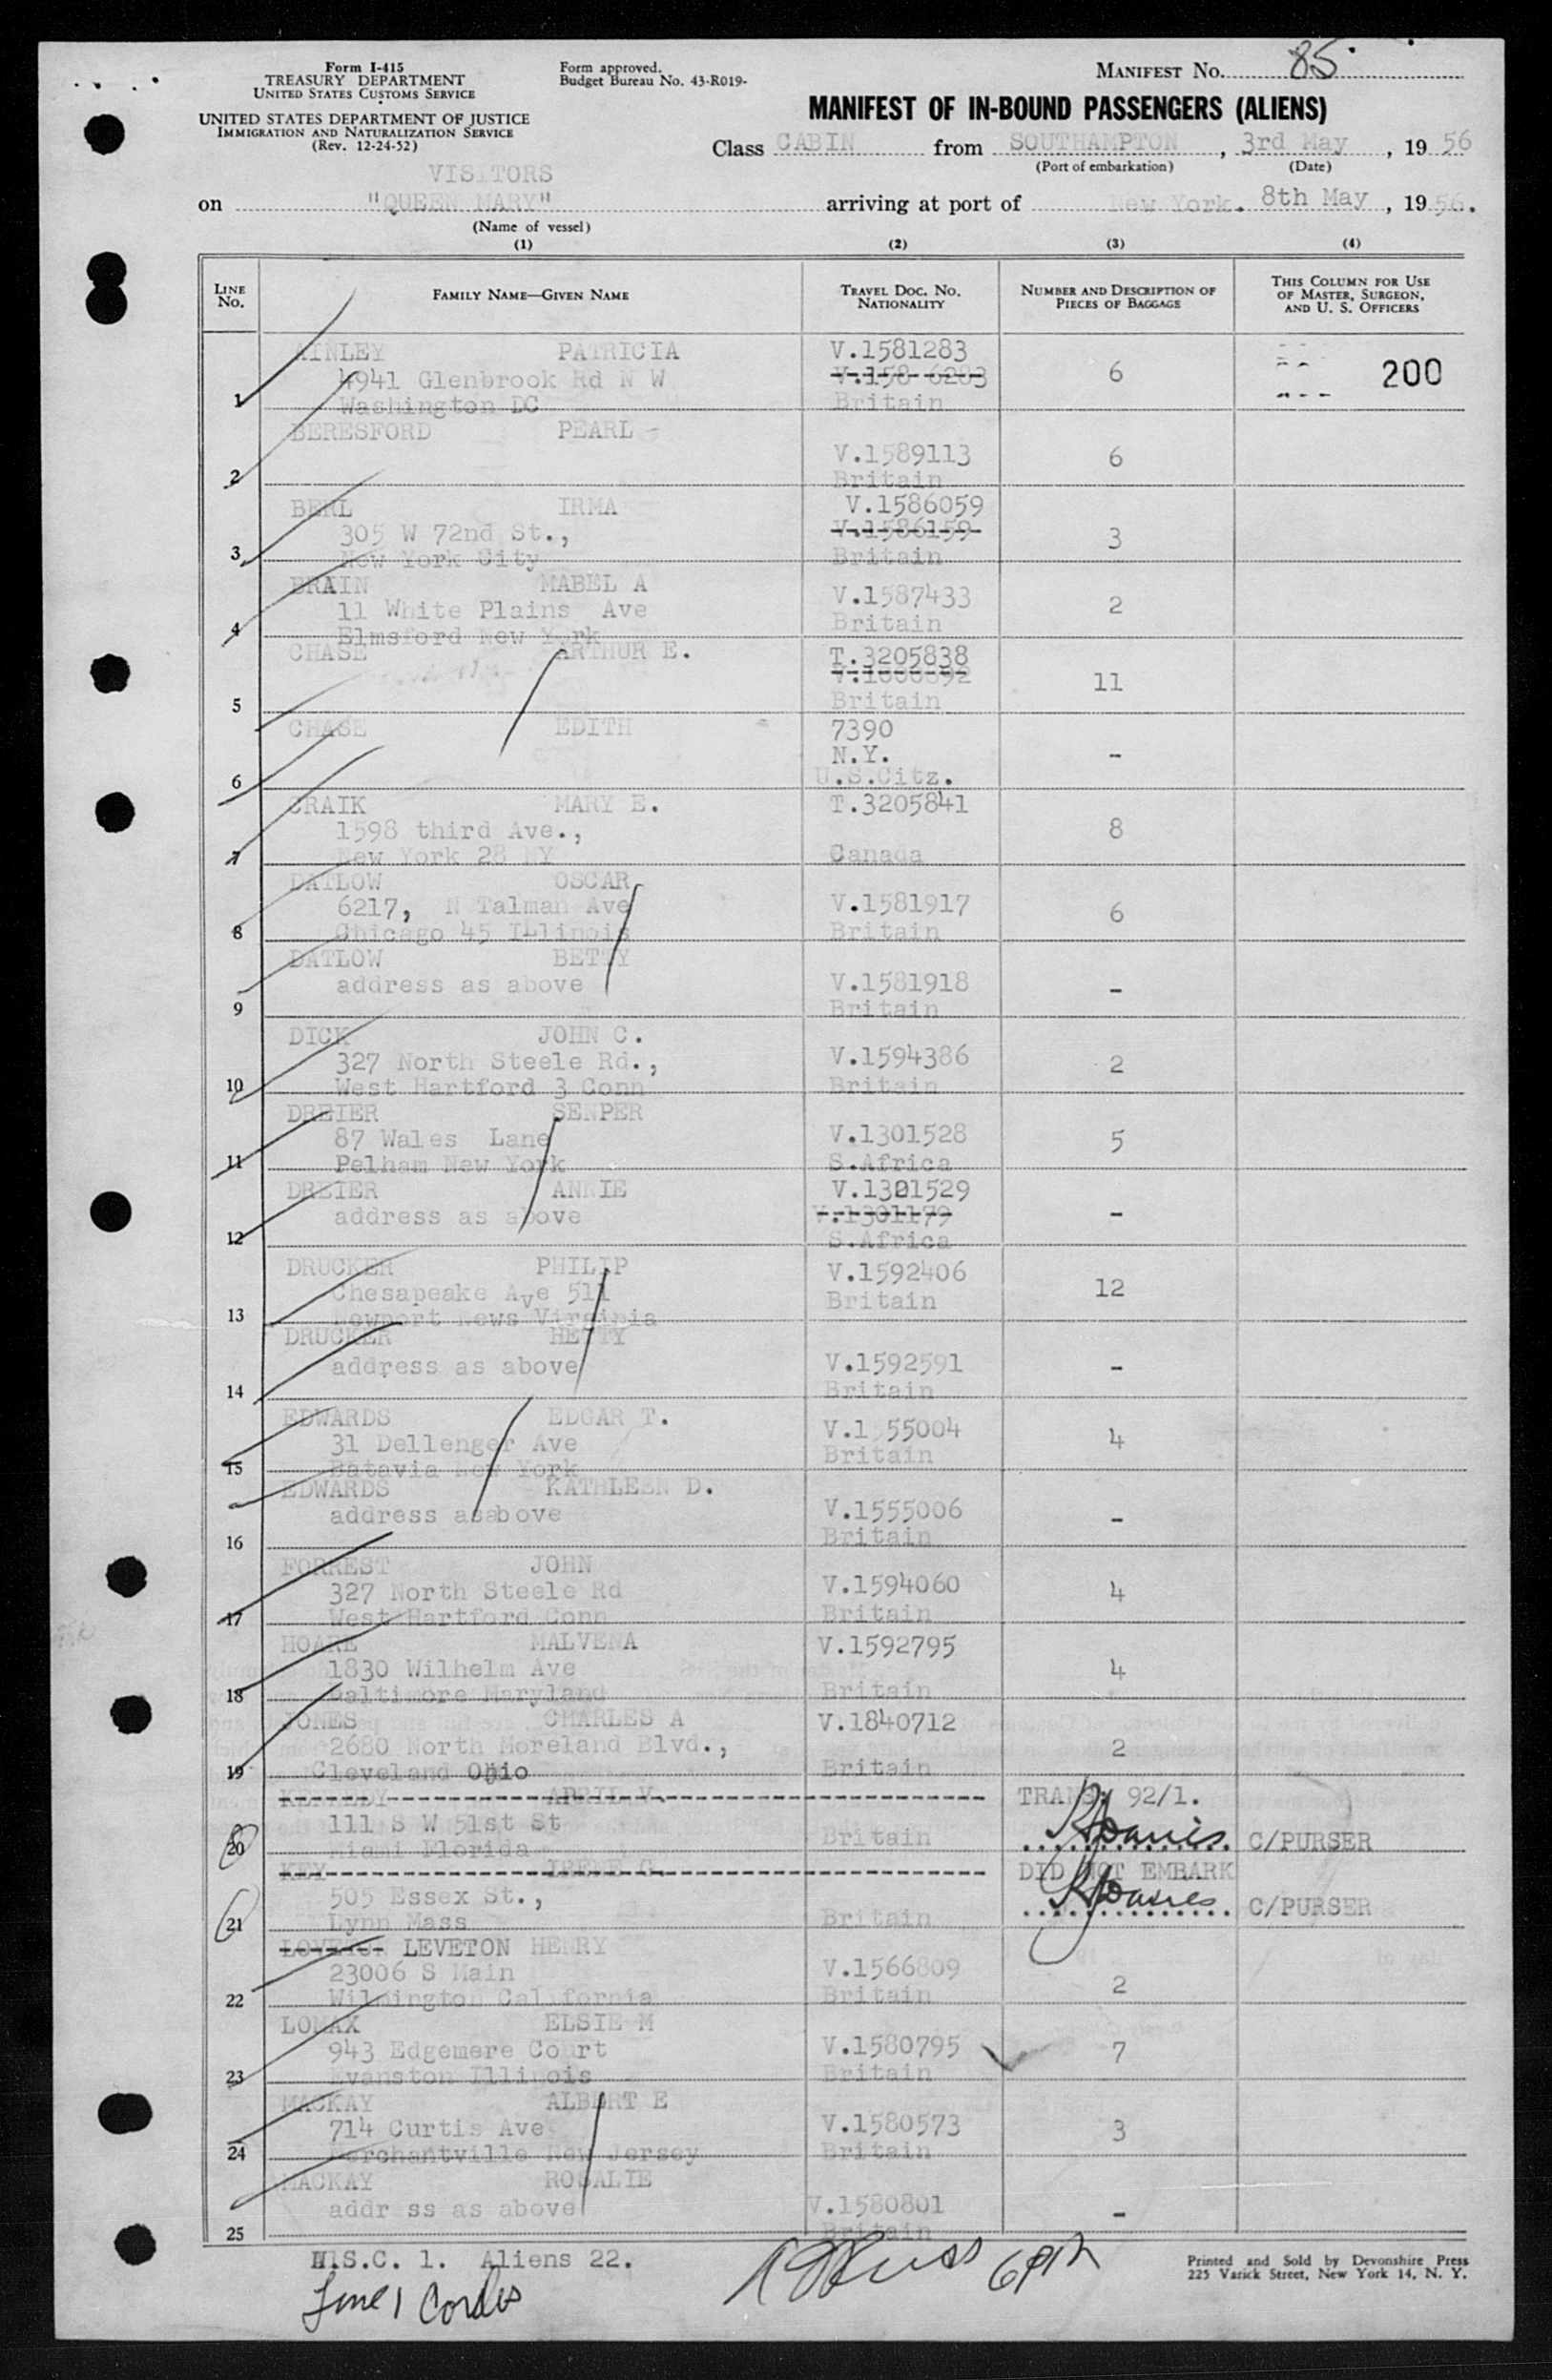 Form I-415
TREASURY DEPARTMENT
UNITED STATES CUSTOMS SERVICE
UNITED STATES DEPARTMENT OF JUSTICE
IMMIGRATION AND NATURALIZATION SERVICE
(Rev. 12-24-52)
Form approved.
Budget Bureau No. 43-R019-
MANIFEST No. 85
MANIFEST OF IN-BOUND PASSENGERS (ALIENS)
Class CABIN from SOUTHAMPTON, 3rd May, 19 56
(Port of embarkation) (Date)
VISITORS
on "QUEEN MARY" arriving at port of New York. 8th May, 19 56.
(Name of vessel)
(1) (2) (3) (4)
LINE No. FAMILY NAME—GIVEN NAME TRAVEL DOC. NO. NATIONALITY NUMBER AND DESCRIPTION OF PIECES OF BAGGAGE THIS COLUMN FOR USE OF MASTER, SURGEON, AND U. S. OFFICERS
AINLEY PATRICIA V.1581283
4941 Glenbrook Rd N W V.158 6283 6 200
1 Washington DC Britain
BERESFORD PEARL -
V.1589113 6
2 Britain
BERL IRMA V.1586059
305 W 72nd St., V.1586159 3
3 New York City Britain
BRAIN MABEL A V.1587433
11 White Plains Ave 2
4 Elmsford New York Britain
CHASE ARTHUR E. T.3205838
11
5 Britain
CHASE EDITH 7390
N.Y. -
6 U.S.Citz.
CRAIK MARY E. T.3205841
1598 third Ave., 8
7 New York 28 NY Canada
DATLOW OSCAR
6217, N Talman Ave V.1581917 6
8 Chicago 45 Illinois Britain
DATLOW BETTY
address as above V.1581918 -
9 Britain
DICK JOHN C.
327 North Steele Rd., V.1594386 2
10 West Hartford 3 Conn Britain
DREIER SENPER
87 Wales Lane V.1301528 5
11 Pelham New York S.Africa
DREIER ANNIE V.1301529
address as above V.1301179 -
12 S.Africa
DRUCKER PHILIP V.1592406
Chesapeake Ave 511 Britain 12
13 Newport News Virginia
DRUCKER HETTY
address as above V.1592591 -
14 Britain
EDWARDS EDGAR T.
31 Dellenger Ave V.1 55004 4
15 Batavia New York Britain
EDWARDS KATHLEEN D.
address asabove V.1555006 -
16 Britain
FORREST JOHN
327 North Steele Rd V.1594060 4
17 West Hartford Conn Britain
HOARE MALVENA V.1592795
1830 Wilhelm Ave 4
18 Baltimore Maryland Britain
JONES CHARLES A V.1840712
2680 North Moreland Blvd., 2
19 Cleveland Ohio Britain
KENNEDY APRIL V. TRANS: 92/1.
111 S W 51st St
20 Miami Florida Britain C/PURSER
KEY IRENE G. DID NOT EMBARK
505 Essex St., C/PURSER
21 Lynn Mass Britain
LEVETON HENRY
23006 S Main V.1566809 2
22 Wilmington California Britain
LOMAX ELSIE M
943 Edgemere Court V.1580795 7
23 Evanston Illinois Britain
MACKAY ALBERT E
714 Curtis Ave V.1580573 3
24 Merchantville New Jersey Britain
MACKAY ROSALIE
addr ss as above V.1580801 -
25 Britain
U.S.C. 1. Aliens 22.
Printed and Sold by Devonshire Press
225 Varick Street, New York 14, N. Y.